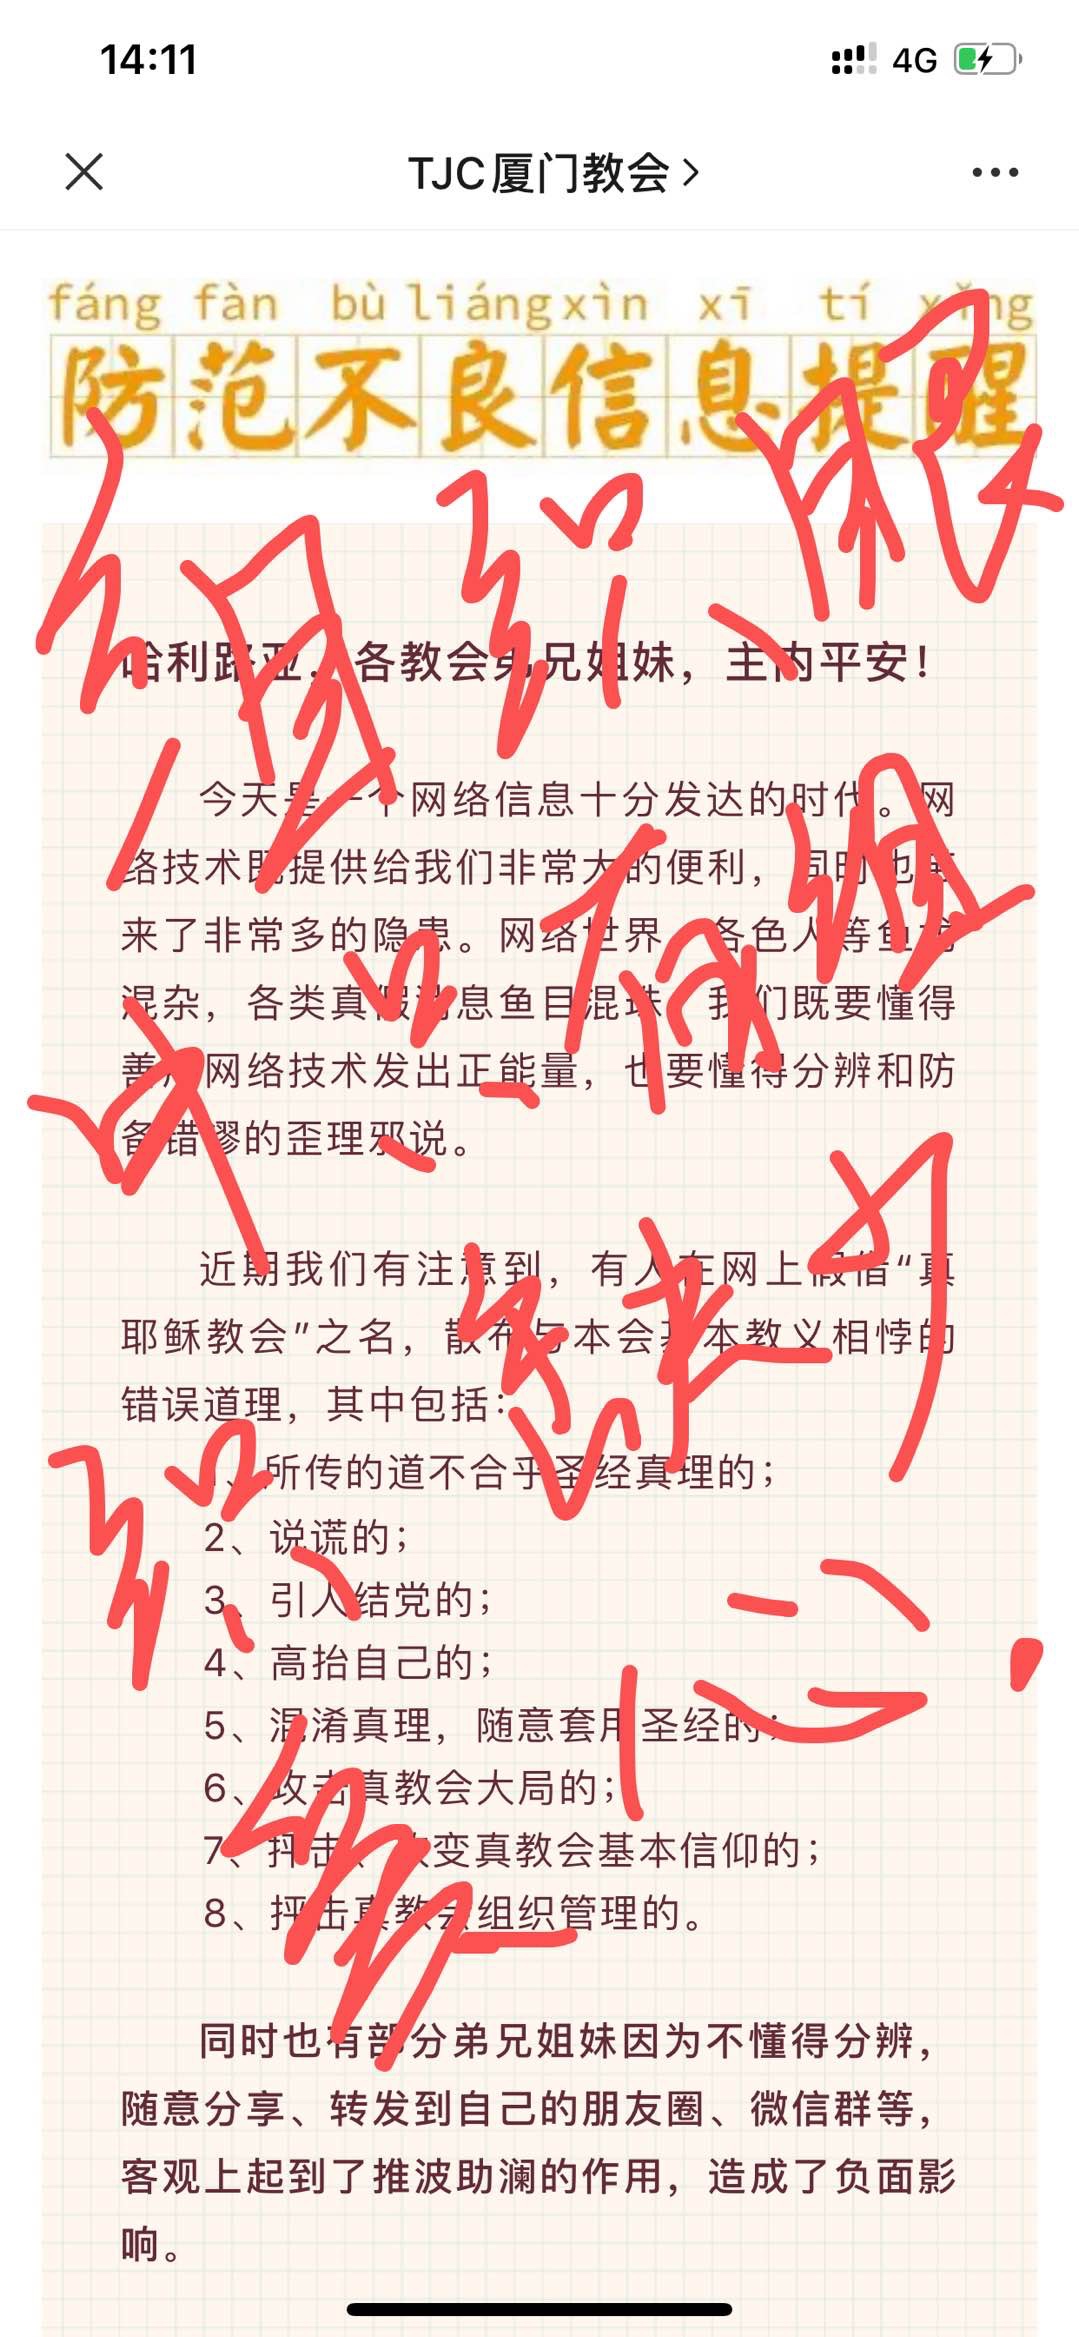 14:11
4G
TJC厦门教会
fáng fàn bù liáng xìn xī tí xǐng
防范不良信息提醒
哈利路亚，各教会弟兄姐妹，主内平安！
今天是一个网络信息十分发达的时代。网
络技术既提供给我们非常大的便利，同时也带
来了非常多的隐患。网络世界，各色人等鱼龙
混杂，各类真假消息鱼目混珠。我们既要懂得
善用网络技术发出正能量，也要懂得分辨和防
备错谬的歪理邪说。
近期我们有注意到，有人在网上假借“真
耶稣教会”之名，散布与本会基本教义相悖的
错误道理，其中包括：
1、所传的道不合乎圣经真理的；
2、说谎的；
3、引人结党的；
4、高抬自己的；
5、混淆真理，随意套用圣经的；
6、攻击真教会大局的；
7、抨击、改变真教会基本信仰的；
8、抨击真教会组织管理的。
同时也有部分弟兄姐妹因为不懂得分辨，
随意分享、转发到自己的朋友圈、微信群等，
客观上起到了推波助澜的作用，造成了负面影
响。
组织
只有组
织